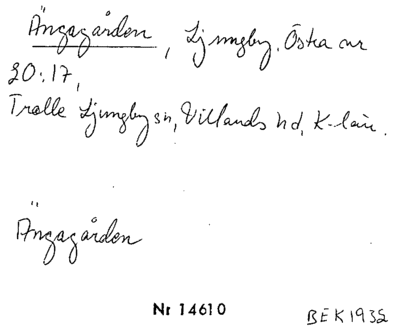 Ängagården, Ljungby. Östra nr
20:17,
Trolle Ljungby sn, Villands hd, K-län.
Ängagården
Nr 14610
BEK1932